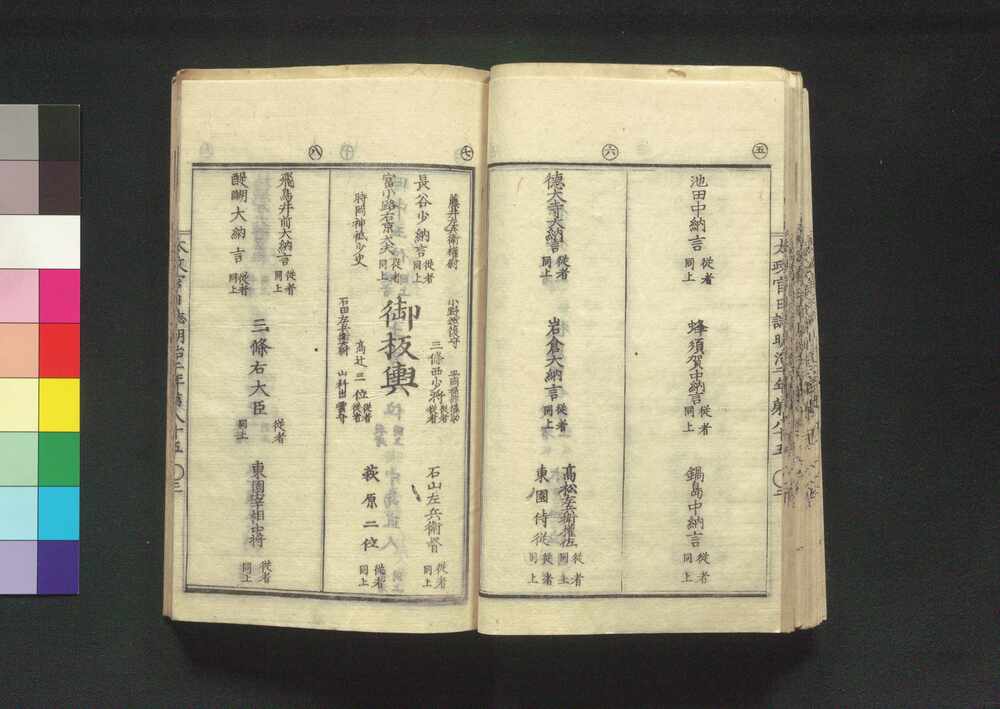 五
池田中納言 従者 同上
蜂須賀中納言 従者 同上
鍋島中納言 従者 同上
六
徳大寺大納言 従者 同上
岩倉大納言 従者 同上
高松左兵衛権佐 従者 同上
東園侍従 従者 同上
七
藤井左兵衛権尉
長谷少納言 従者 同上
富小路右京大夫 従者 同上
特岡神祇少史
小野
三條西少将 従者
御板輿
高辻三位 従者
石田左兵衛尉
山科出雲守
石山左兵衛督 従者 同上
萩原二位 従者 同上
八
飛鳥井前大納言 従者 同上
醍醐大納言 従者 同上
三條右大臣 従者 同上
東園宰相中将 従者 同上
太政官日誌明治二年第八十五